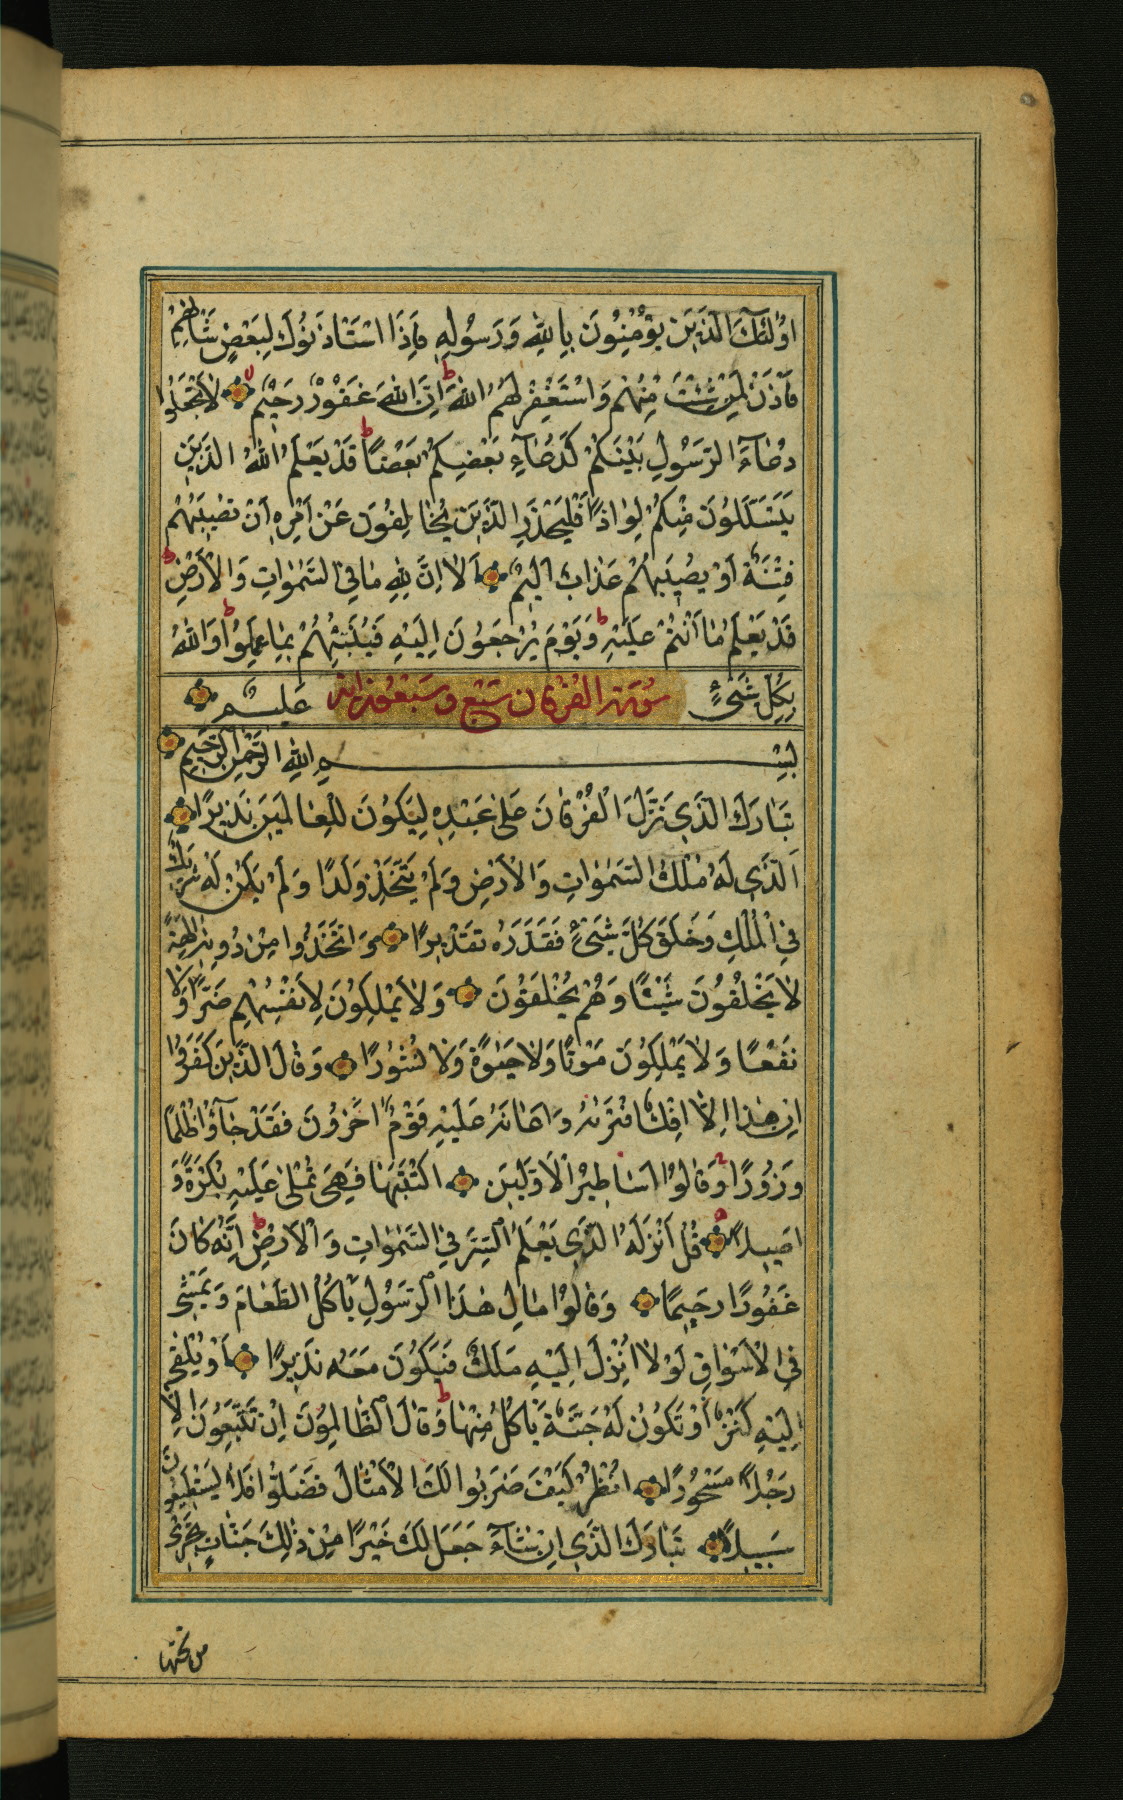 اُولٰئِكَ الَّذِينَ يُؤْمِنُونَ بِاللّٰهِ وَرَسُولِهِ فَاِذَا اسْتَأْذَنُوكَ لِبَعْضِ شَأْنِهِمْ
فَأْذَنْ لِمَنْ شِئْتَ مِنْهُمْ وَاسْتَغْفِرْ لَهُمُ اللّٰهَ ط اِنَّ اللّٰهَ غَفُورٌ رَحِيمٌ لَا تَجْعَلُوا
دُعَآءَ الرَّسُولِ بَيْنَكُمْ كَدُعَآءِ بَعْضِكُمْ بَعْضًا ط قَدْ يَعْلَمُ اللّٰهُ الَّذِينَ
يَتَسَلَّلُونَ مِنْكُمْ لِوَاذًا فَلْيَحْذَرِ الَّذِينَ يُخَالِفُونَ عَنْ اَمْرِهِ اَنْ تُصِيبَهُمْ
فِتْنَةٌ اَوْ يُصِيبَهُمْ عَذَابٌ اَلِيمٌ اَلَا اِنَّ لِلّٰهِ مَا فِي السَّمٰوَاتِ وَالْاَرْضِ ط
قَدْ يَعْلَمُ مَا اَنْتُمْ عَلَيْهِ ط وَيَوْمَ يُرْجَعُونَ اِلَيْهِ فَيُنَبِّئُهُمْ بِمَا عَمِلُوا ط وَاللّٰهُ
بِكُلِّ شَيْءٍ سُورَة الفُرْقَان سَبْع وَسَبْعُونَ اٰية عَلِيمٌ
بِسْمِ اللّٰهِ الرَّحْمٰنِ الرَّحِيمِ
تَبَارَكَ الَّذِي نَزَّلَ الْفُرْقَانَ عَلٰى عَبْدِهِ لِيَكُونَ لِلْعَالَمِينَ نَذِيرًا
اَلَّذِي لَهُ مُلْكُ السَّمٰوَاتِ وَالْاَرْضِ وَلَمْ يَتَّخِذْ وَلَدًا وَلَمْ يَكُنْ لَهُ شَرِيكٌ
فِي الْمُلْكِ وَخَلَقَ كُلَّ شَيْءٍ فَقَدَّرَهُ تَقْدِيرًا وَاتَّخَذُوا مِنْ دُونِهِ اٰلِهَةً
لَا يَخْلُقُونَ شَيْئًا وَهُمْ يُخْلَقُونَ وَلَا يَمْلِكُونَ لِاَنْفُسِهِمْ ضَرًّا وَلَا
نَفْعًا وَلَا يَمْلِكُونَ مَوْتًا وَلَا حَيٰوةً وَلَا نُشُورًا وَقَالَ الَّذِينَ كَفَرُوا
اِنْ هٰذَا اِلَّا اِفْكٌ افْتَرٰىهُ وَاَعَانَهُ عَلَيْهِ قَوْمٌ اٰخَرُونَ فَقَدْ جَآؤُا ظُلْمًا
وَزُورًا وَقَالُوا اَسَاطِيرُ الْاَوَّلِينَ اكْتَتَبَهَا فَهِيَ تُمْلٰى عَلَيْهِ بُكْرَةً وَ
اَصِيلًا قُلْ اَنْزَلَهُ الَّذِي يَعْلَمُ السِّرَّ فِي السَّمٰوَاتِ وَالْاَرْضِ ط اِنَّهُ كَانَ
غَفُورًا رَحِيمًا وَقَالُوا مَالِ هٰذَا الرَّسُولِ يَأْكُلُ الطَّعَامَ وَيَمْشِي
فِي الْاَسْوَاقِ لَوْلَا اُنْزِلَ اِلَيْهِ مَلَكٌ فَيَكُونَ مَعَهُ نَذِيرًا اَوْ يُلْقٰى
اِلَيْهِ كَنْزٌ اَوْ تَكُونُ لَهُ جَنَّةٌ يَأْكُلُ مِنْهَا ط وَقَالَ الظَّالِمُونَ اِنْ تَتَّبِعُونَ اِلَّا
رَجُلًا مَسْحُورًا انْظُرْ كَيْفَ ضَرَبُوا لَكَ الْاَمْثَالَ فَضَلُّوا فَلَا يَسْتَطِيعُونَ
سَبِيلًا تَبَارَكَ الَّذِي اِنْ شَآءَ جَعَلَ لَكَ خَيْرًا مِنْ ذٰلِكَ جَنَّاتٍ تَجْرِي
من تحتها